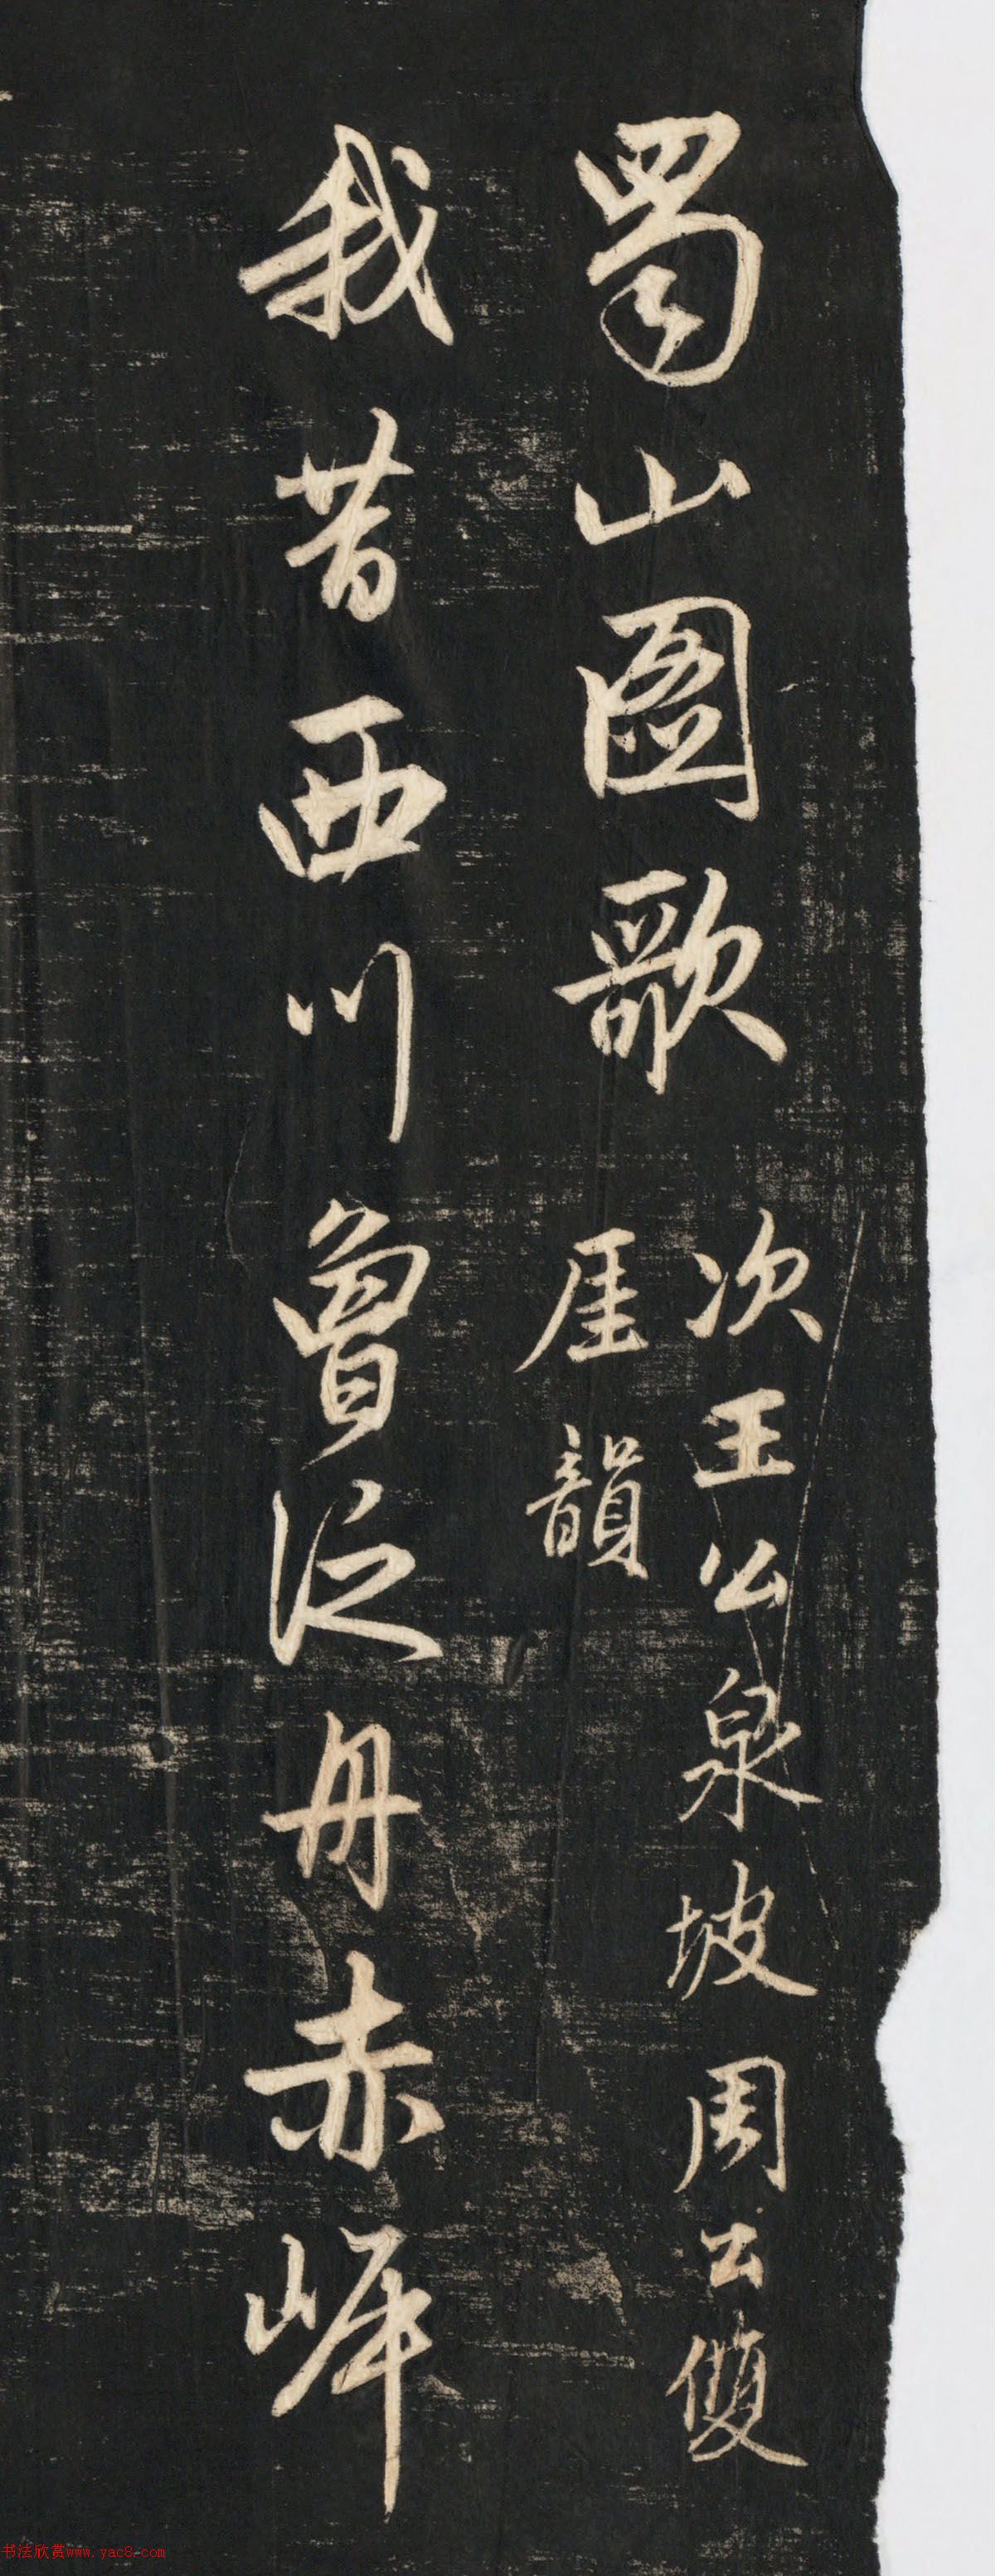 蜀山圖歌
次王公泉坡周公雙
厓韻
我昔西川曾泛舟赤岸
书法欣赏www.yac8.com